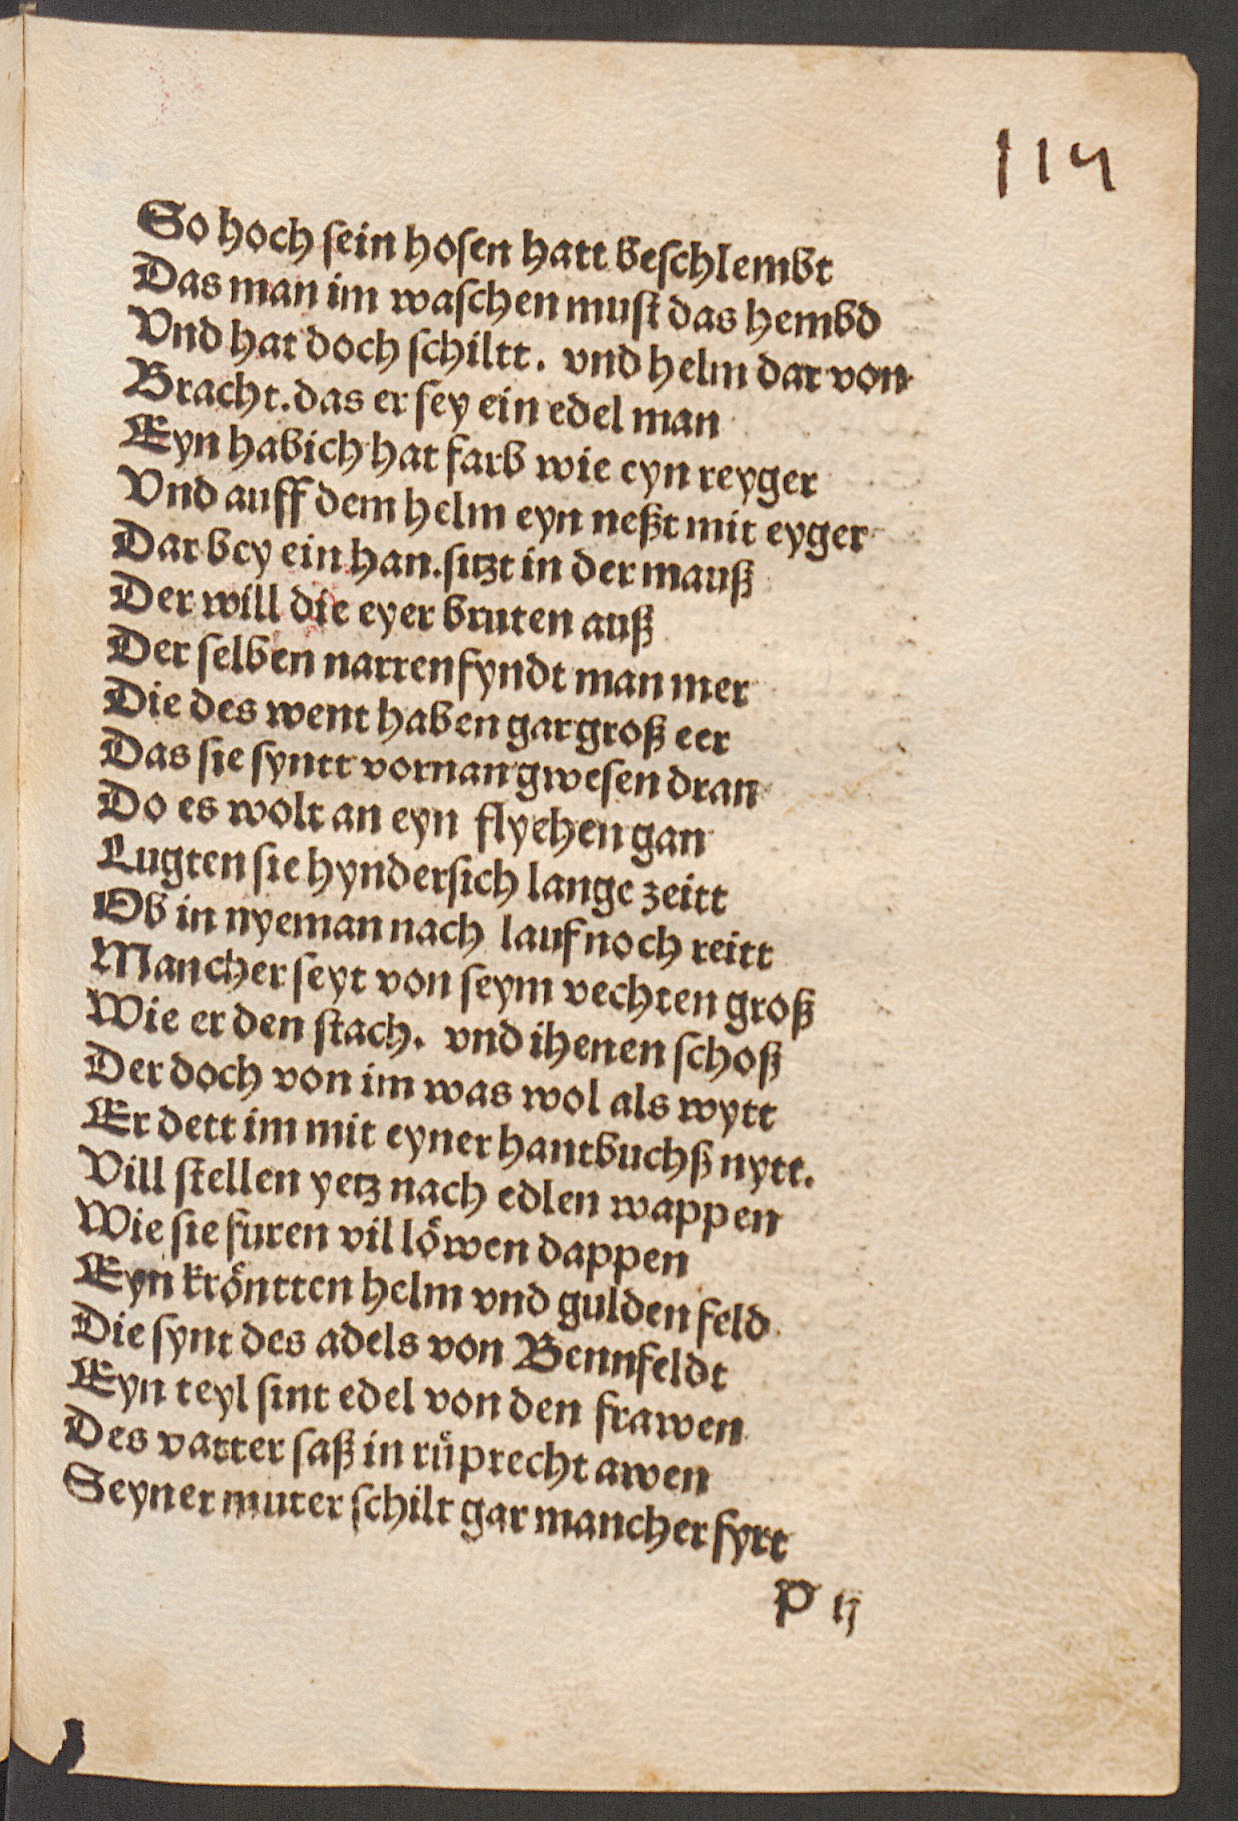 114
So hoch ſein hoſen hatt beſchlembt
Das man im waſchen muſt das hembd
Vnd hat doch ſchiltt. vnd helm dar von
Bracht. das er ſey ein edel man
Eyn habich hat farb wie eyn reyger
Vnd auff dem helm eyn neßt mit eyger
Dar bey ein han. ſitzt in der mauß
Der will die eyer bruten auß
Der ſelben narren fyndt man mer
Die des went haben gar groß eer
Das ſie ſyntt vornan gweſen dran
Do es wolt an eyn flyehen gan
Lugten ſie hynderſich lange zeitt
Ob in nyeman nach lauf noch reitt
Mancher ſeyt von ſeym vechten groß
Wie er den ſtach. vnd ihenen ſchoß
Der doch von im was wol als wytt
Er dett im mit eyner hantbuchß nytt.
Vill ſtellen yetz nach edlen wappen
Wie ſie furen vil löwen dappen
Eyn kröntten helm vnd gulden feld
Die ſynt des adels von Bennfeldt
Eyn teyl ſint edel von den frawen
Des vatter ſaß in rüprecht awen
Seyner muter ſchilt gar mancher fyrt
P ij